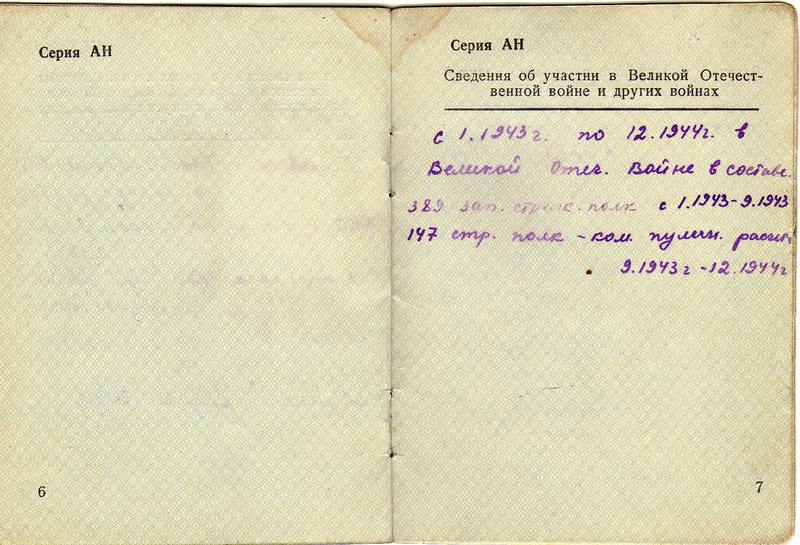 Серия АН
6
Серия АН
Сведения об участии в Великой Отечест-
венной войне и других войнах
с 1.1943г. по 12.1944г. в
Великой Отеч. Войне в составе.
389 зап. стрелк. полк с 1.1943-9.1943
147 стр. полк - ком. пулем. расчета
9.1943г - 12.1944г
7